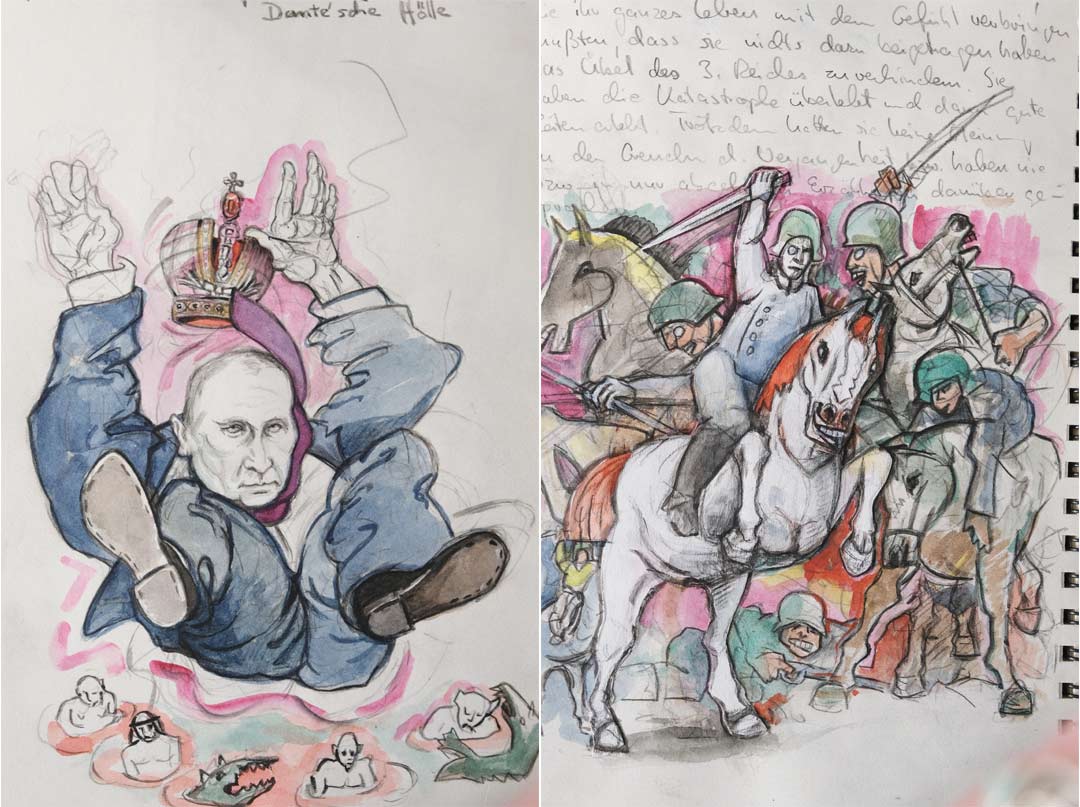 Dante'sche Hölle
ihr ganzes Leben mit dem Gefühl verbringen
ußten, dass sie nichts dazu beigetragen haben
as Übel des 3. Reiches zu verhindern. Sie
aben die Katastrophe überlebt und dann gute
eiten erlebt. Trotzdem hatten sie keine Meinung
den Greueln d. Vergangenheit bzw. haben nie
nur darüber ge-